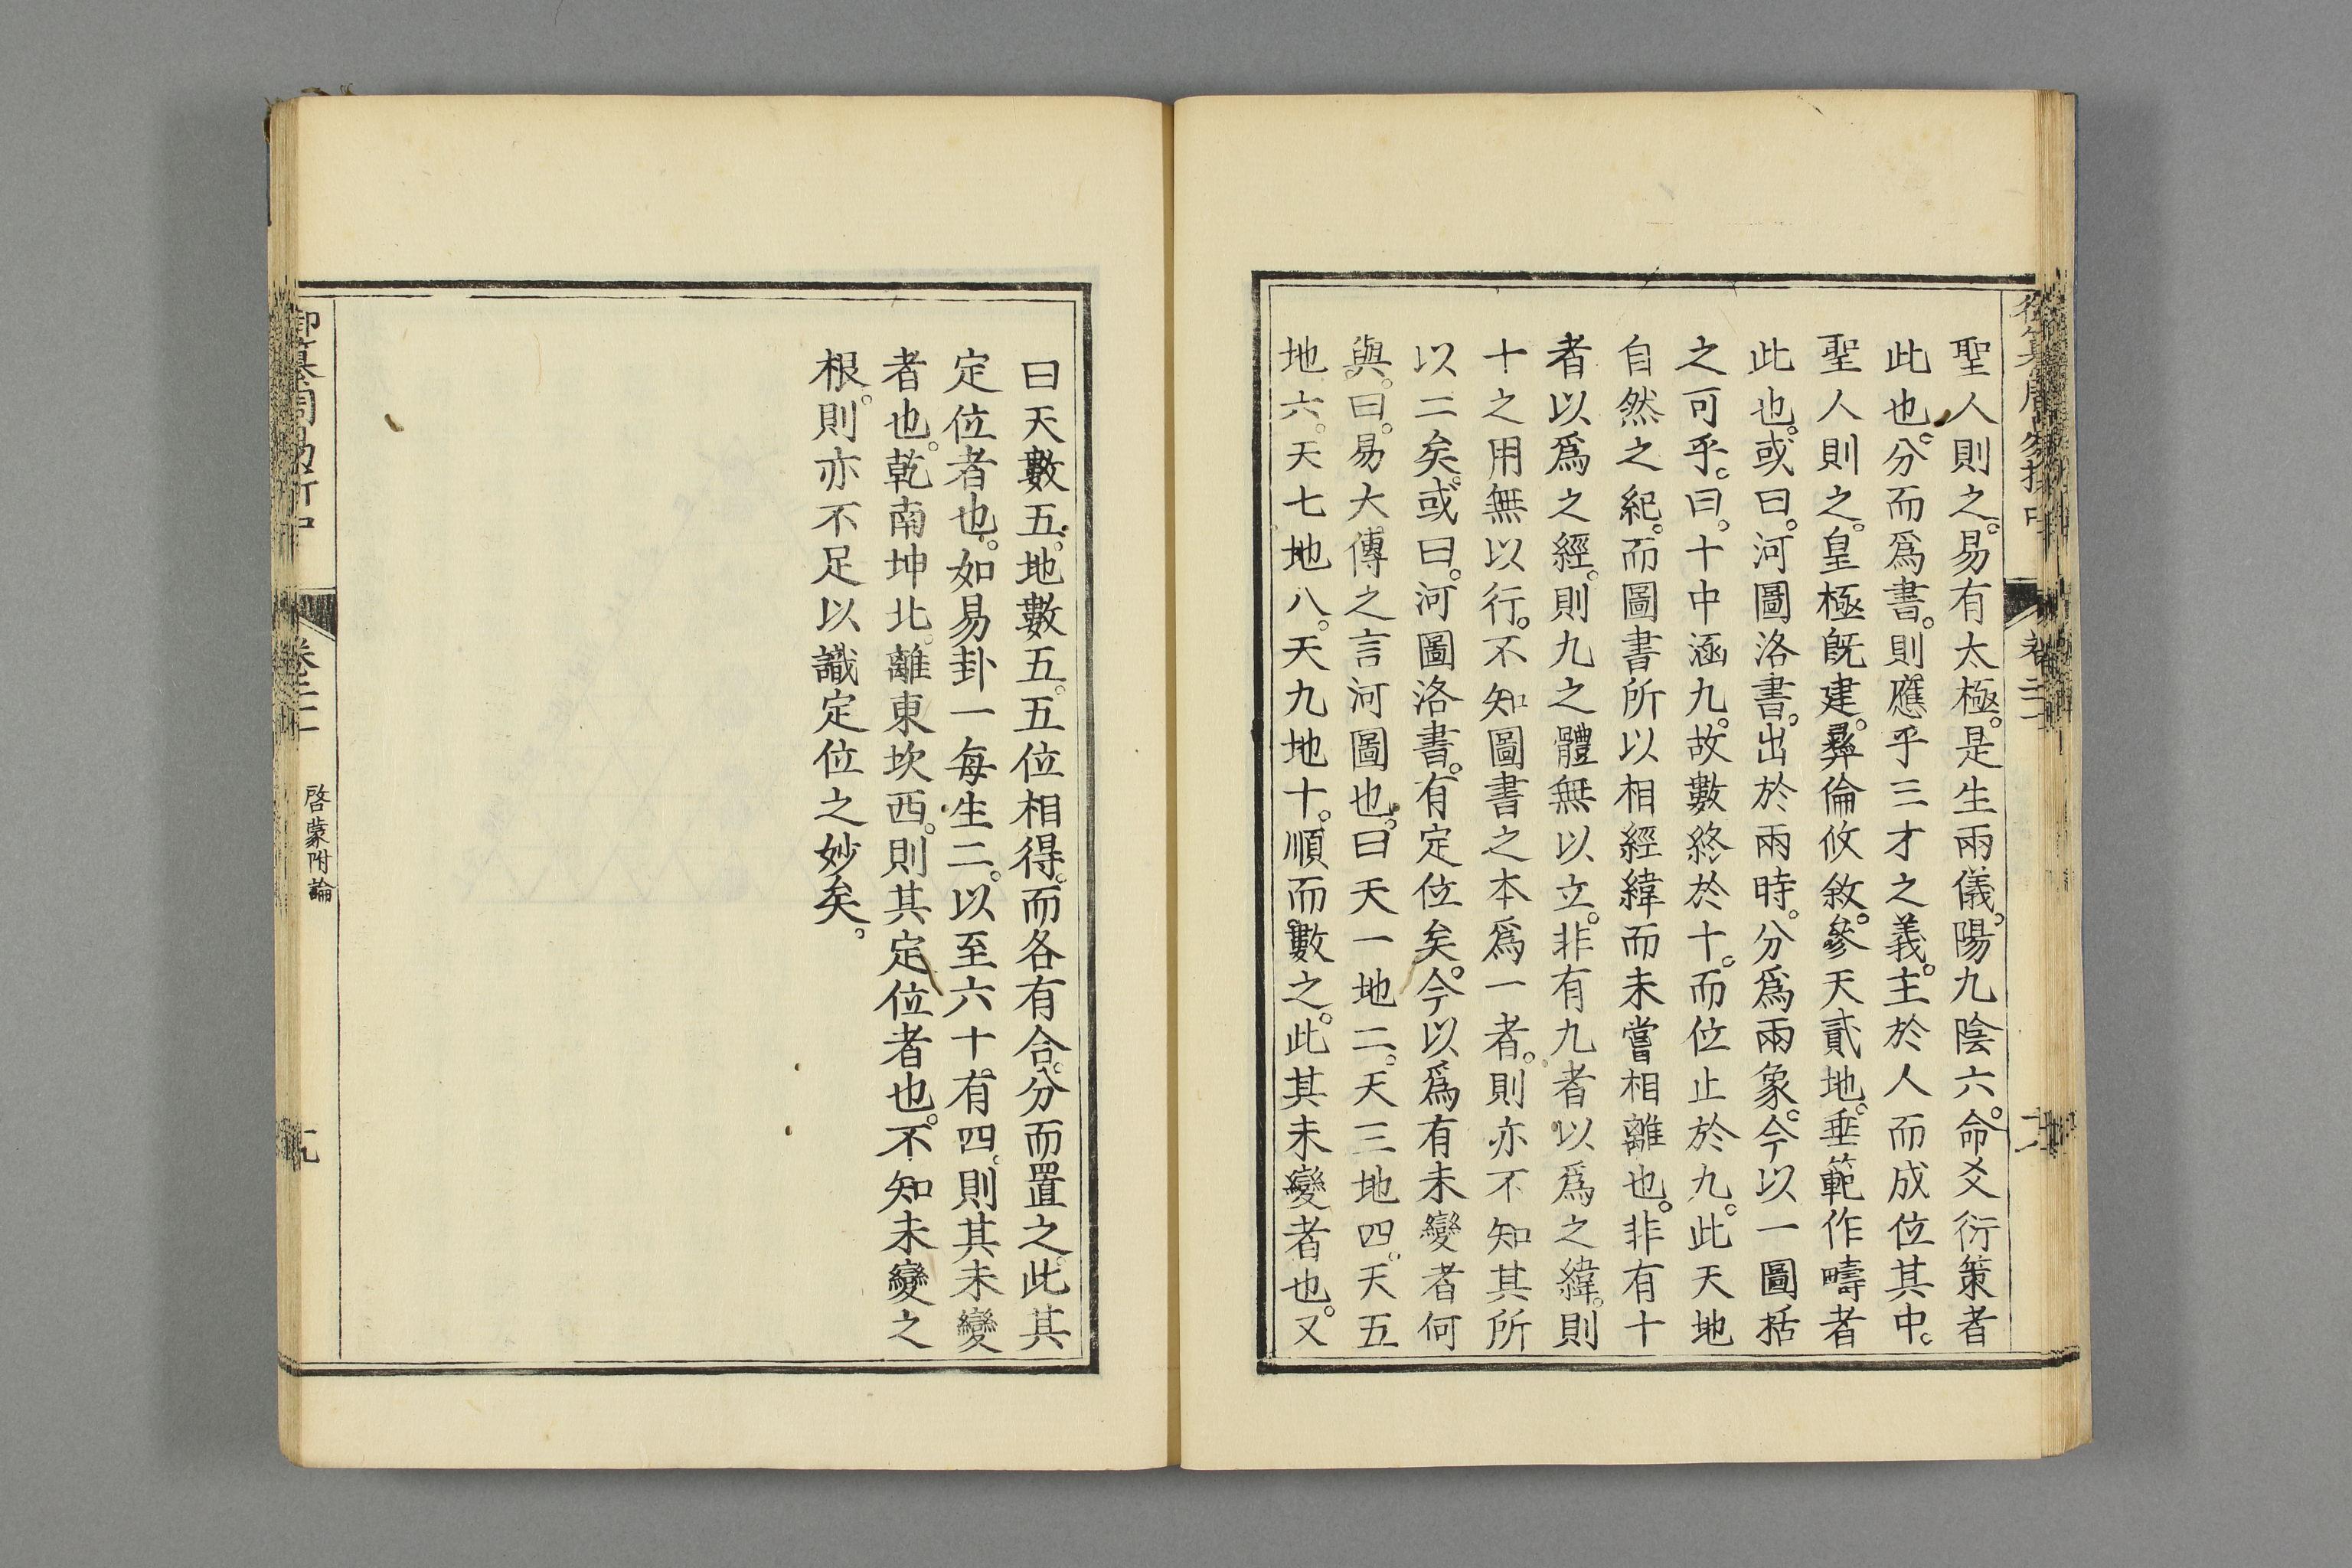 聖人則之。易有太極。是生兩儀。陽九陰六。命爻衍策者
此也。分而爲書。則應乎三才之義。主於人而成位其中。
聖人則之。皇極旣建。彝倫攸敘。參天貳地。垂範作疇者
此也。或曰。河圖洛書。出於兩時。分爲兩象。今以一圖括
之可乎。曰。十中涵九。故數終於十。而位止於九。此天地
自然之紀。而圖書所以相經緯而未嘗相離也。非有十
者以爲之經。則九之體無以立。非有九者以爲之緯。則
十之用無以行。不知圖書之本爲一者。則亦不知其所
以二矣。或曰。河圖洛書。有定位矣。今以爲有未變者何
與。曰。易大傳之言河圖也。曰天一地二。天三地四。天五
地六。天七地八。天九地十。順而數之。此其未變者也。又
曰天數五。地數五。五位相得。而各有合。分而置之。此其
定位者也。如易卦一每生二。以至六十有四。則其未變
者也。乾南坤北。離東坎西。則其定位者也。不知未變之
根。則亦不足以識定位之妙矣。
御纂周易折中
卷二十一
啓蒙附論